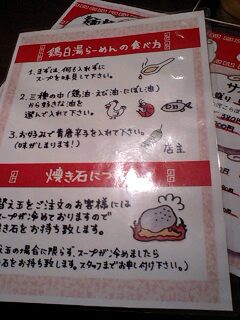 鶏白湯らーめんの食べ方
1. まずは、何も入れずに
スープを味見して下さい。
2. 三種の中(鶏油・えび油・にぼし油)
から好きな油を
選んで入れて下さい。
3. お好みで青唐辛子を入れて下さい。
(味がしまります!)
店主
焼き石につ
替え玉をご注文のお客様には
スープが冷めておりますので
き石をお持ち致します。
玉の場合に限らず、スープが冷めましたら
石をお持ち致します。スタッフまでお申し付け下さい。)